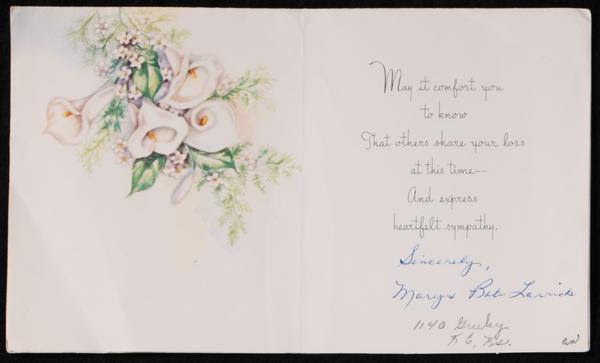 May it comfort you
to know
That others share your loss
at this time—
And express
heartfelt sympathy.
Sincerely,
Mary & Bob
1140 Greeley
K C, Ks.